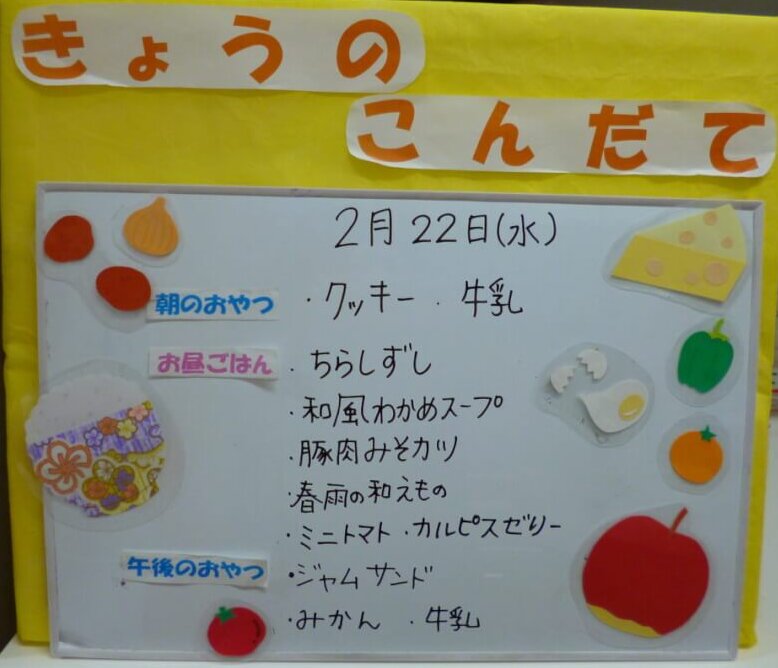 きょうの
こんだて
2月22日(水)
朝のおやつ ・クッキー ・牛乳
お昼ごはん ・ちらしずし
・和風わかめスープ
・豚肉みそカツ
・春雨の和えもの
・ミニトマト ・カルピスゼリー
午後のおやつ ・ジャムサンド
・みかん ・牛乳